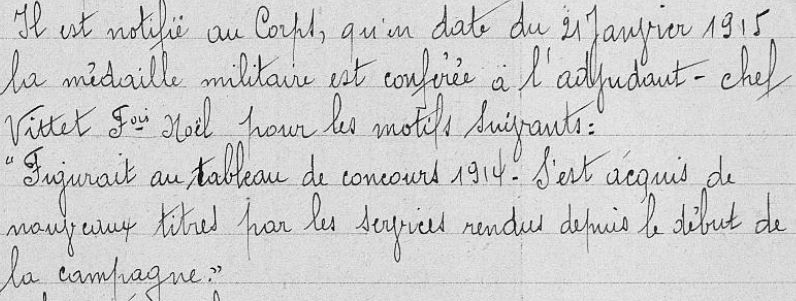 Il est notifié au Corps, qu'en date du 21 Janvier 1915
la médaille militaire est conférée à l'adjudant-chef
Vittet Fçois Noël pour les motifs suivants:
"Figurait au tableau de concours 1914. S'est acquis de
nouveaux titres par les services rendus depuis le début de
la campagne."